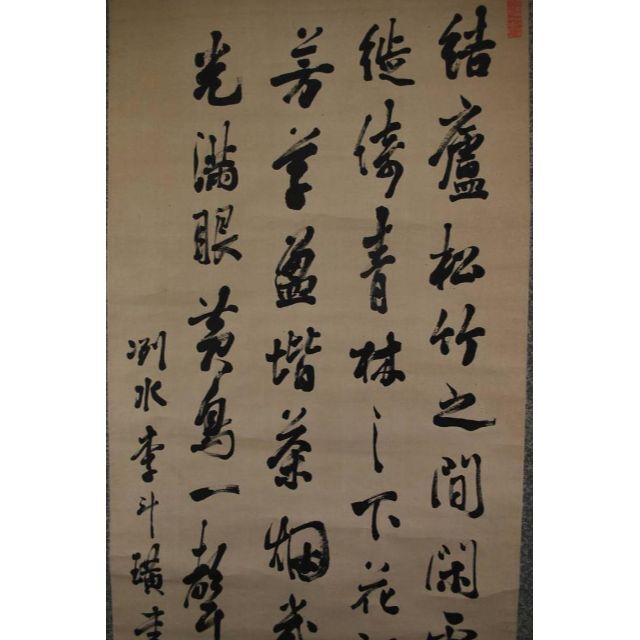 結廬松竹之間閑雲
徙倚青林之下花
芳草盈堦茶烟幾
光滿眼黃鳥一聲
冽水李斗璜書